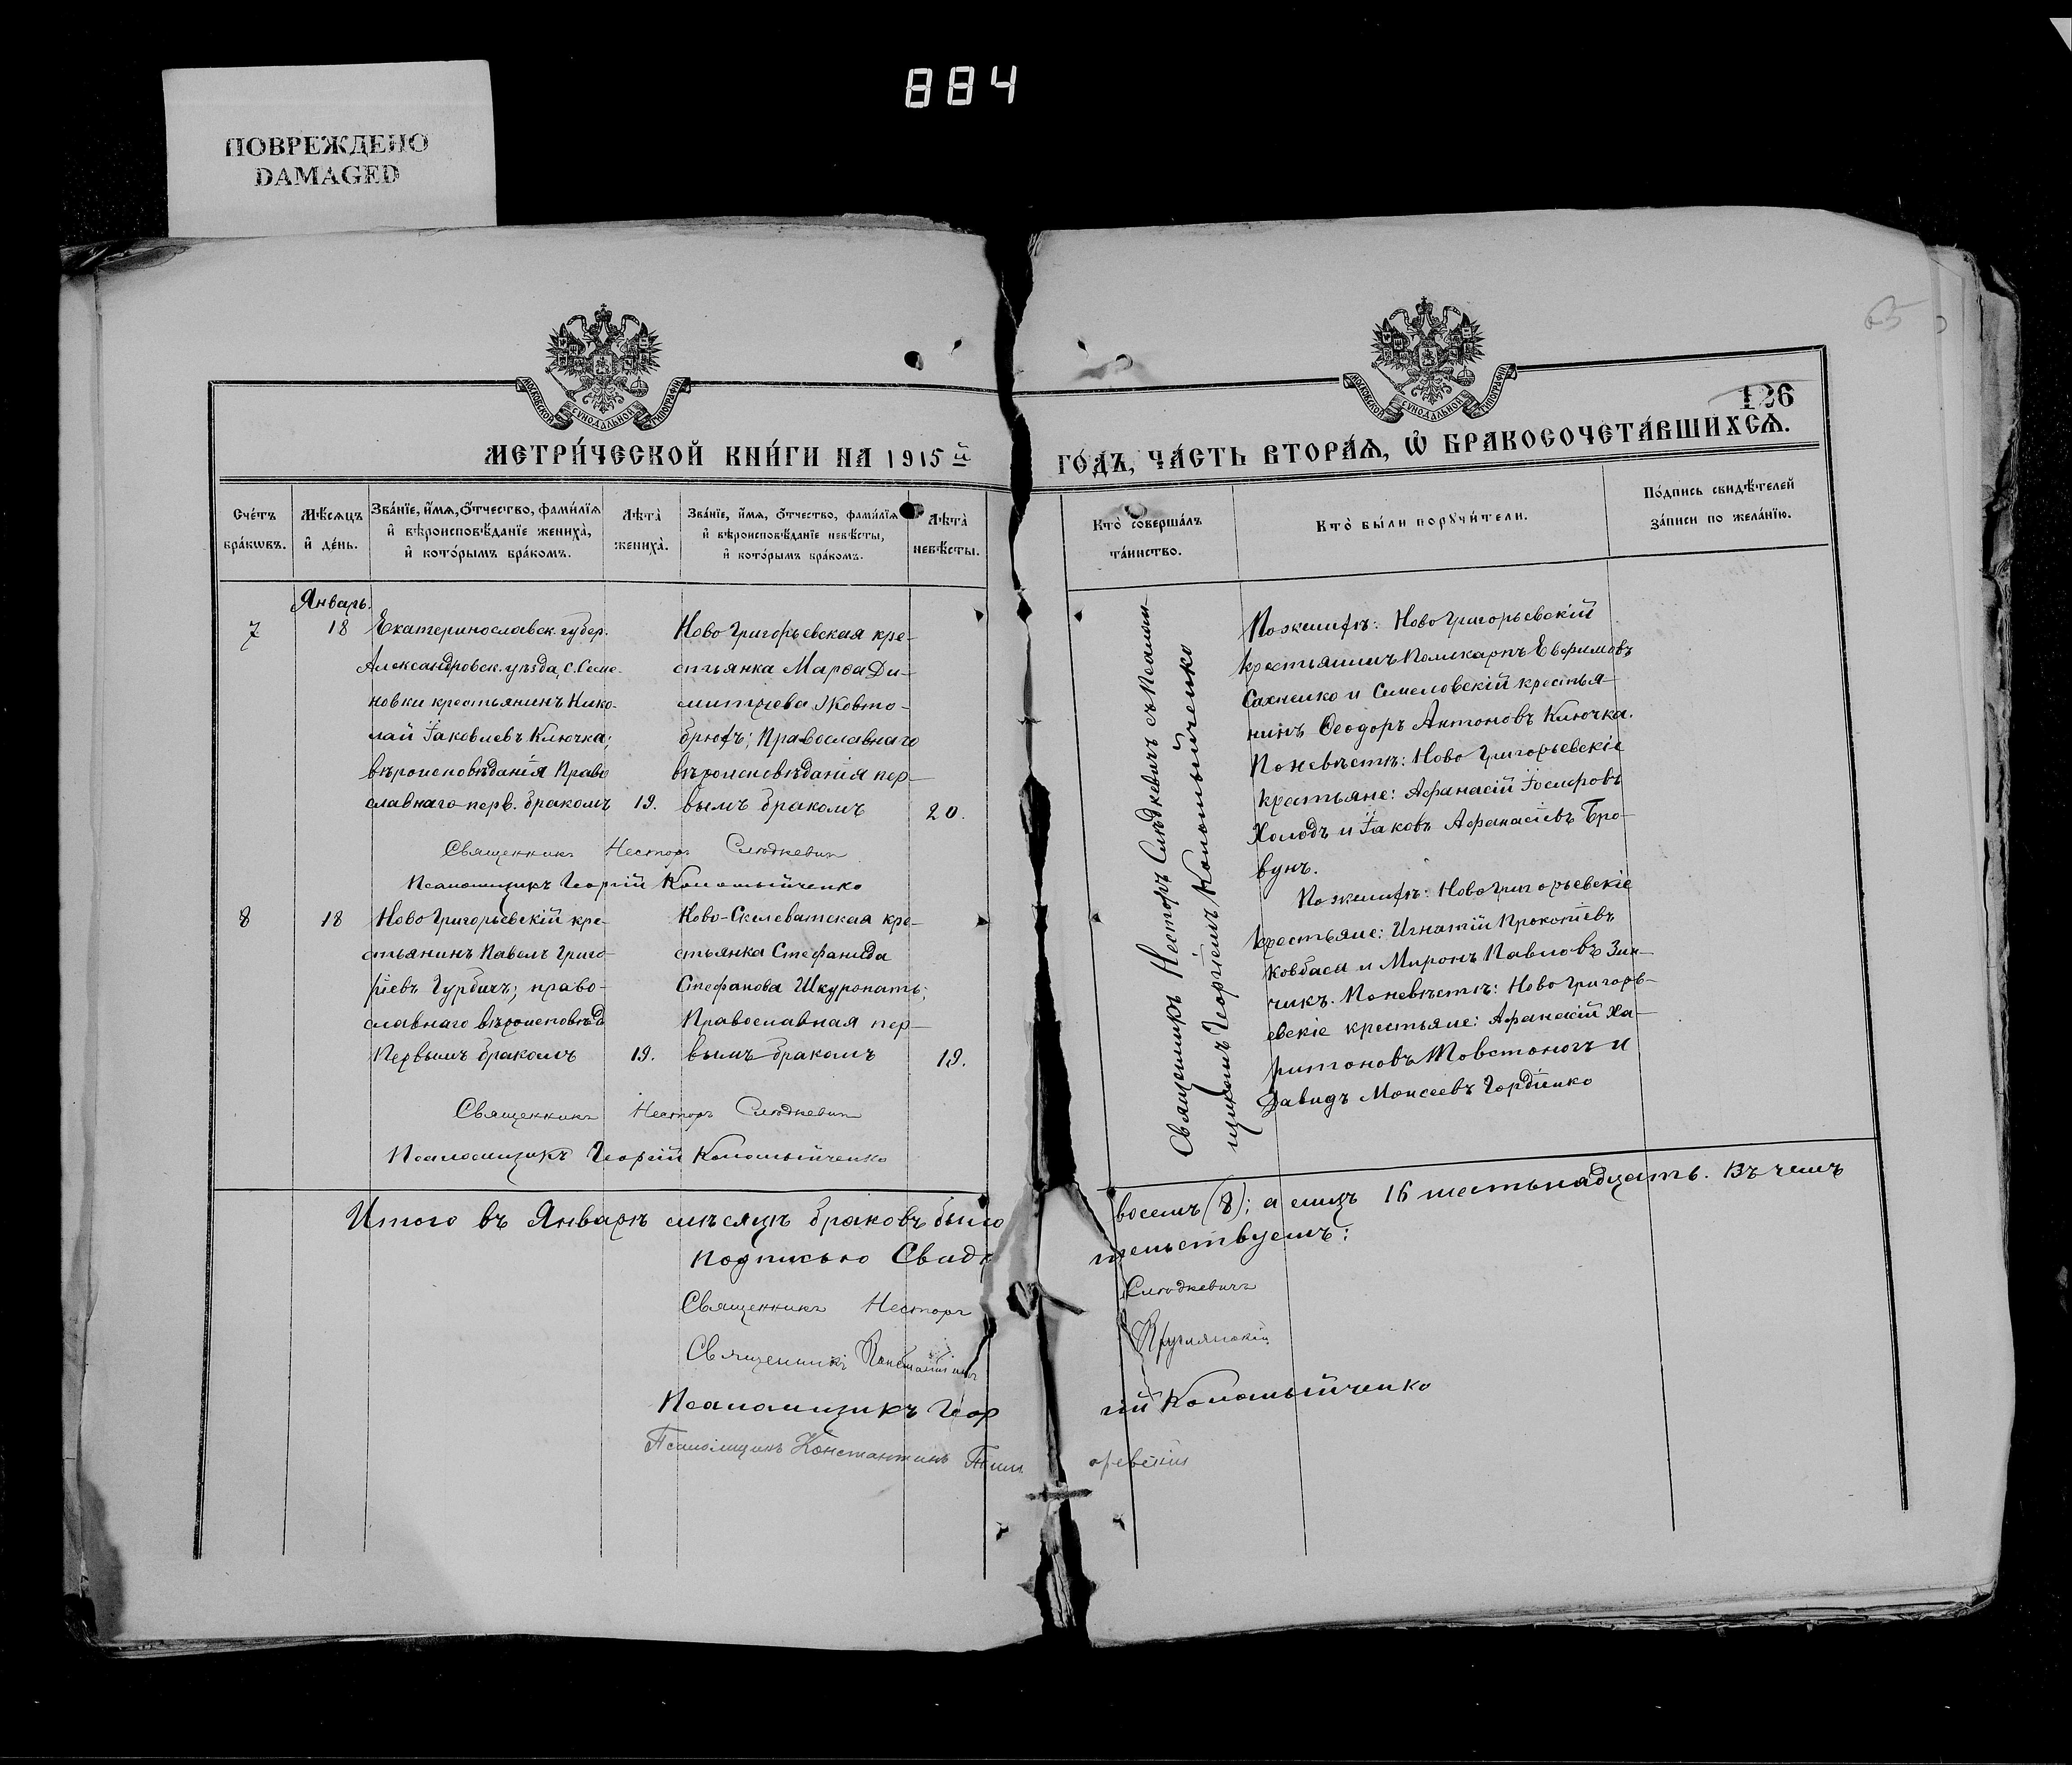 884
ПОВРЕЖДЕНО
DAMAGED
65
126
МОСКОВСКОЙ СУНОДАЛЬНОЙ ТИПОГРАФІИ
МОСКОВСКОЙ СУНОДАЛЬНОЙ ТИПОГРАФІИ
МЕТРИ́ЧЕСКОЙ КНИ́ГИ НА 1915й ГО́ДЪ, ЧА́СТЬ ВТОРА́Ѧ, Ѡ҆ БРАКОСОЧЕТА́ВШИХСѦ.
Сче́тъ
бра́кѡвъ.
Мѣ́сѧцъ
и҆ де́нь.
Зва́нїе, и҆́мѧ, ѻ҆́тчество, фами́лїѧ
и҆ вѣроисповѣ́данїе жениха̀,
и҆ кото́рымъ бра́комъ.
Лѣ̀та̀
жениха̀.
Зва́нїе, и҆́мѧ, ѻ҆́тчество, фами́лїѧ
и҆ вѣроисповѣ́данїе невѣ́сты,
и҆ кото́рымъ бра́комъ.
Лѣ̀та̀
невѣ́сты.
Кто̀ соверша́лъ
та́инство.
Кто̀ бы́ли порꙋчи́тели.
По́дпись свидѣ́телей
за́писи по жела́нїю.
Январь.
7
18
Екатеринославск. губер.
Александровск. уѣзда, с. Семе-
новки крестьянинъ Нико-
лай Іаковлевъ Ключка;
вѣроисповѣданія Право
славнаго перв. бракомъ
19.
Ново Григорьевская кре-
стьянка Марѳа Ди-
митріева Жовто-
брюхъ; Православнаго
вѣроисповѣданія пер-
вымъ бракомъ
20.
Священникъ Несторъ Слюдкевичъ
Псаломщикъ Георгій Коломыйченко
Священникъ Несторъ Слюдкевичъ съ псалом-
щикомъ Георгіемъ Коломыйченко
По женихѣ: Ново Григорьевскій
крестьянинъ Поликарпъ Евфимовъ
Сахненко и Семеловскій крестья-
нинъ Ѳеодоръ Антоновъ Ключка.
По невѣстѣ: Ново Григорьевскіе
крестьяне: Афанасій Іосифовъ
Холодъ и Іаковъ Афанасіевъ Бро-
вунъ.
8
18
Ново Григорьевскій кре-
стьянинъ Павелъ Григо-
ріевъ Гурбичъ; право-
славнаго вѣроисповѣд
Первымъ бракомъ
19.
Ново-Скелеватская кре-
стьянка Стефанида
Стефанова Шкуропатъ;
Православная пер-
вымъ бракомъ
19.
По женихѣ: Ново Григорьевскіе
крестьяне: Игнатій Прокопіевъ
Ковбаса и Миронъ Павловъ Зин-
чикъ. По невѣстѣ: Ново Григорь-
евскіе крестьяне: Афанасій Ха-
ритоновъ Товстоногъ и
Давидъ Моисеевъ Гордіенко
Священникъ Несторъ Слюдкевичъ
Псаломщикъ Георгій Коломыйченко
Итого въ Январѣ мѣсяцѣ браковъ было восемь (8); а лицъ 16 шестьнадцать. Въ чемъ
подписью Свидѣтельствуемъ:
Священникъ Несторъ Слюдкевичъ
Священникъ Константинъ Круглянскій
Псаломщикъ Георгій Коломыйченко
Псаломщикъ Константинъ